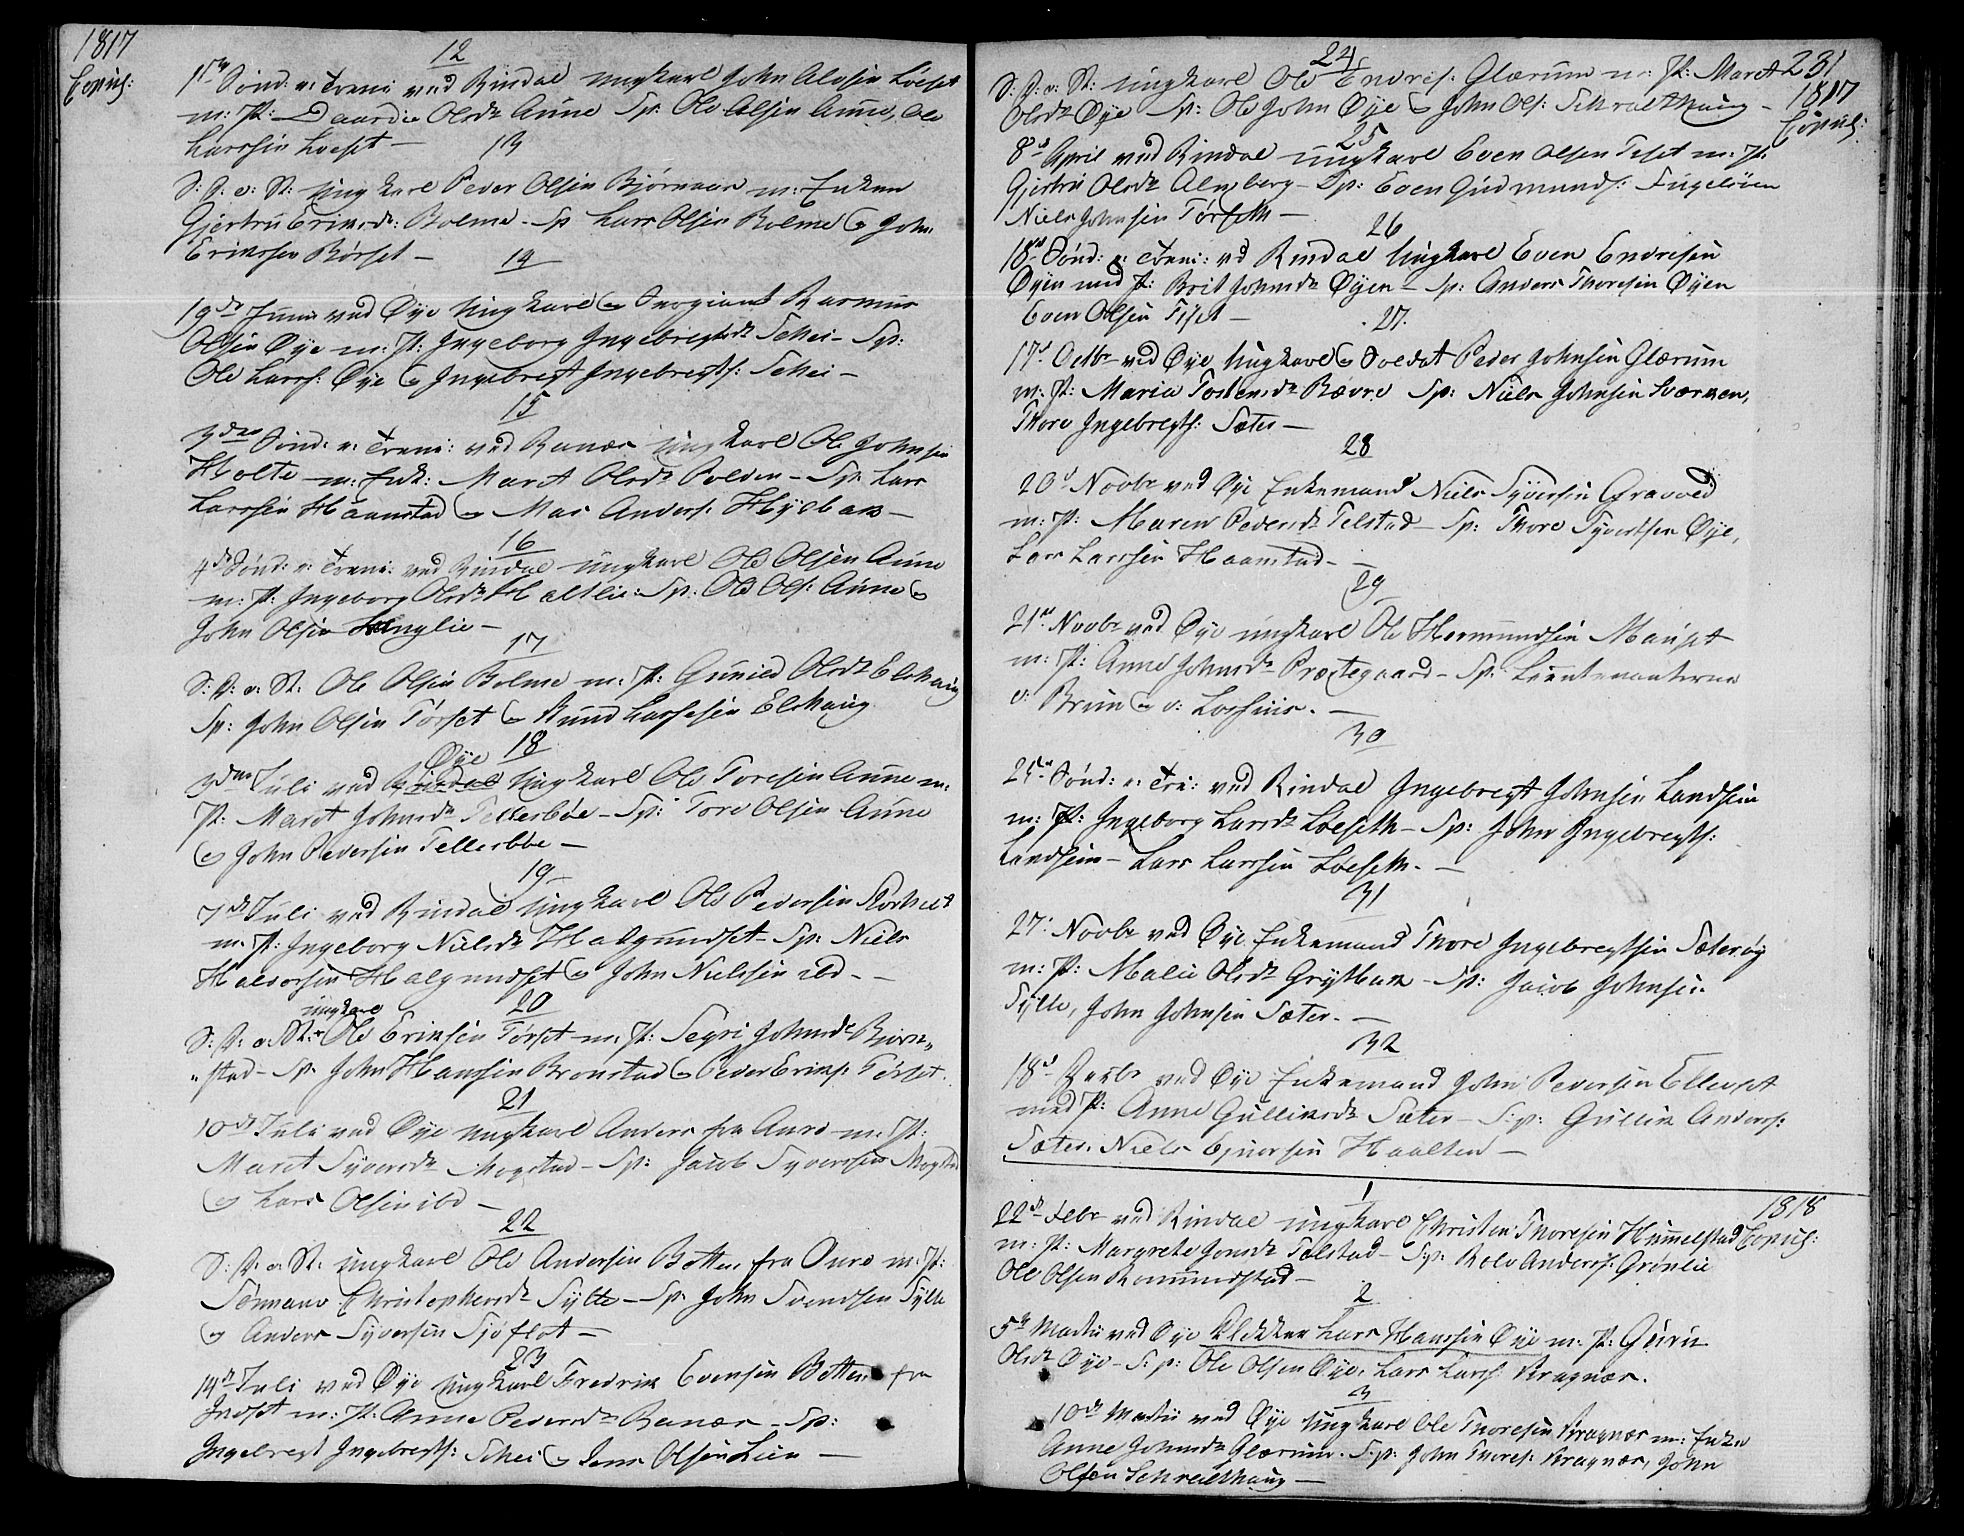 1817
Copul:
12
1ste Sønd: e: Treni ved Rindal Ungkarl John Alesen Loeset
m: P: Daardie Olsdr Aune Sp: Ole Olsen Aune, Ole
Larssen Loeset –
13
S: D: e: St: Ungkarl Peder Olsen Bjørnaas m: Enken
Gjertru Eriksdr: Bolme – Sp Lars Olsen Bolme & John
Eriksen Børset –
14
19de Juni ved Øye Ungkarl & Sergiant Rasmus
Olsen Øye m: P: Ingeborg Ingebregtsdr Schei – Sp:
Ole Larss: Øye & Ingebregt Ingebregts: Schei –
15
3die Sønd: e: Treni: ved Ranæs Ungkarl Ole Johnsen
Holte – m: Enk: Maret Olsdr Polden – Sp: Lars
Larssen Haanstad & Mas Anders: Hylbak –
16
4de Sønd: e: Treni: ved Rindal Ungkarl Ole Olsen Aune
m: P: Ingeborg Olsdr Haltlie. Sp: Ole Ols: Aune &
John Olsen Langlie –
17
S: D: e: St: Ole Olsen Bolme m: P: Gunild Olsdr Elshaug
Sp: John Olsen Tørset & Knud Larssen Elshaug
18
Øye
3die Juli ved Rindal Ungkarl Ole Toresen Aune m:
P: Maret Johnsdr Tellesbøe – Sp: Tore Olsen Aune
& John Pedersen Tellesbøe –
19
7de Juli ved Rindal Ungkarl Ole Pedersen
m: P: Ingeborg Nielsdr Halgundset – Sp: Niels
Halvorsen Halgundset & John Nielsen ibd –
20
ungkarl
S: D: e: St: Ole Eriksen Tørset m: P: Segri Johnsdr Bron„
„stad – Sp: John Hansen Bronstad & Peder Eriks: Tørset.
21
10de Juli ved Øye Ungkarl Anders fra Aure m: P:
Maret Syversdr Mogstad – Sp: Jacob Syversen Mogstad
& Lars Olsen ibd –
22
S: D: e: St: Ungkarl Ole Andersen Botten fra Aure m: P:
Christophersdr Sylte – Sp: John Svendsen Sylte
& Anders Syversen Sjøflot –
23
14de Juli ved Øye Ungkarl Fredrik Evensen Botten fra
Indset m: P: Anne Pedersdr Ranæs – Sp:
Ingebregt Ingebregts: Schei & Jens Olsen Lien –
231
1817
Copul:
24
S: D: e: St: Ungkarl Ole Endres: Glærum m: P: Maret
Olsdr Øye Sp: Ole John Øye & John Ols: Schralthaug –
25
8de April ved Rindal Ungkarl Even Olsen Fiset m: P:
Gjertru Olsdr Almberg – Sp: Even Gudmunds: Fugeløien
Niels Johnsen Tørseth –
26
18de Sønd: e: Treni: vd Rindal Ungkarl Even Endresen
Øyen med P: Brit Johnsdr Øyen – Sp: Anders Thoresen Øyen
Even Olsen Fiset –
27.
17de Octbr ved Øye Ungkarl & Soldat Peder Johnsen Glærum
m: P: Maria Tostensdr Bævre Sp: Niels Johnsen Sværnen,
Thore Ingebregts: Sæter –
28
20de Novbr ved Øye Enkemand Niels Syversen Gravvold
m: P: Maren Pedersdr Telstad – Sp: Thore Syvertsen Øye,
Lars Larssen Haanstad. –
29
21de Novbr ved Øye Ungkarl Ole Hermundsen Mauset
m: P: Anne Johnsdr Præstegaard – Sp: Lieutenanterne
v: Brun & v: Lossius. –
30
25de Sønd: e: Tre: ved Rindal Ingebregt Johnsen Landsem
m: P: Ingeborg Larsdr Loeseth – Sp: John Ingebregts:
Landsem – Lars Larssen Loeseth. –
31
27: Novbr ved Øye Enkemand Thore Ingebregtsen Sæterøy
m: P: Malie Olsdr Grytbak – Sp: Jacob Johnsen
Sylte, John Johnsen Sæter. –
32
18de Decbr ved Øye Enkemand John Pedersen Ellevset
med P: Anne Gulliksdr Sæter – S: p: Gullik Anders:
Sæter. Niels Ejnersen Haalten –
1818
Copul:
1
22de Febr ved Rindal Ungkarl Christen Thoresen Himmelstad
m: P: Margrete Jonsdr Tælstad – Sp: Rolv Anders: Grønlie
Ole Olsen Romundstad –
2
5te Martii ved Øye Klokker Lars Hanssen Øye m: P: Guru
Olsdr Øye – S: p: Ole Olsen Øye, Lars Larss: Kragnæs.
3
10de Martii ved Øye Ungkarl Ole Thoresen Kragnæs m: Enke
Anne Johnsdr Glærum. S: p: John Thores: Kragnæs, John
Olsen Schralthaug –